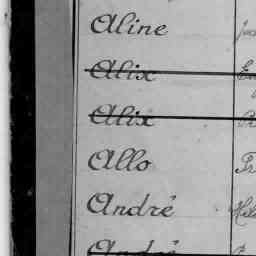 Aline
Alix
Alix
Allo
André
André